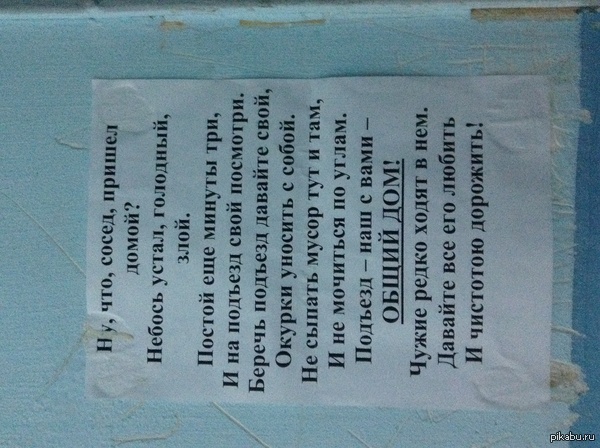 Ну, что, сосед, пришел
домой?
Небось устал, голодный,
злой.
Постой еще минуты три,
И на подъезд свой посмотри.
Беречь подъезд давайте свой,
Окурки уносить с собой.
Не сыпать мусор тут и там,
И не мочиться по углам.
Подъезд – наш с вами –
ОБЩИЙ ДОМ!
Чужие редко ходят в нем.
Давайте все его любить
И чистотою дорожить!
pikabu.ru